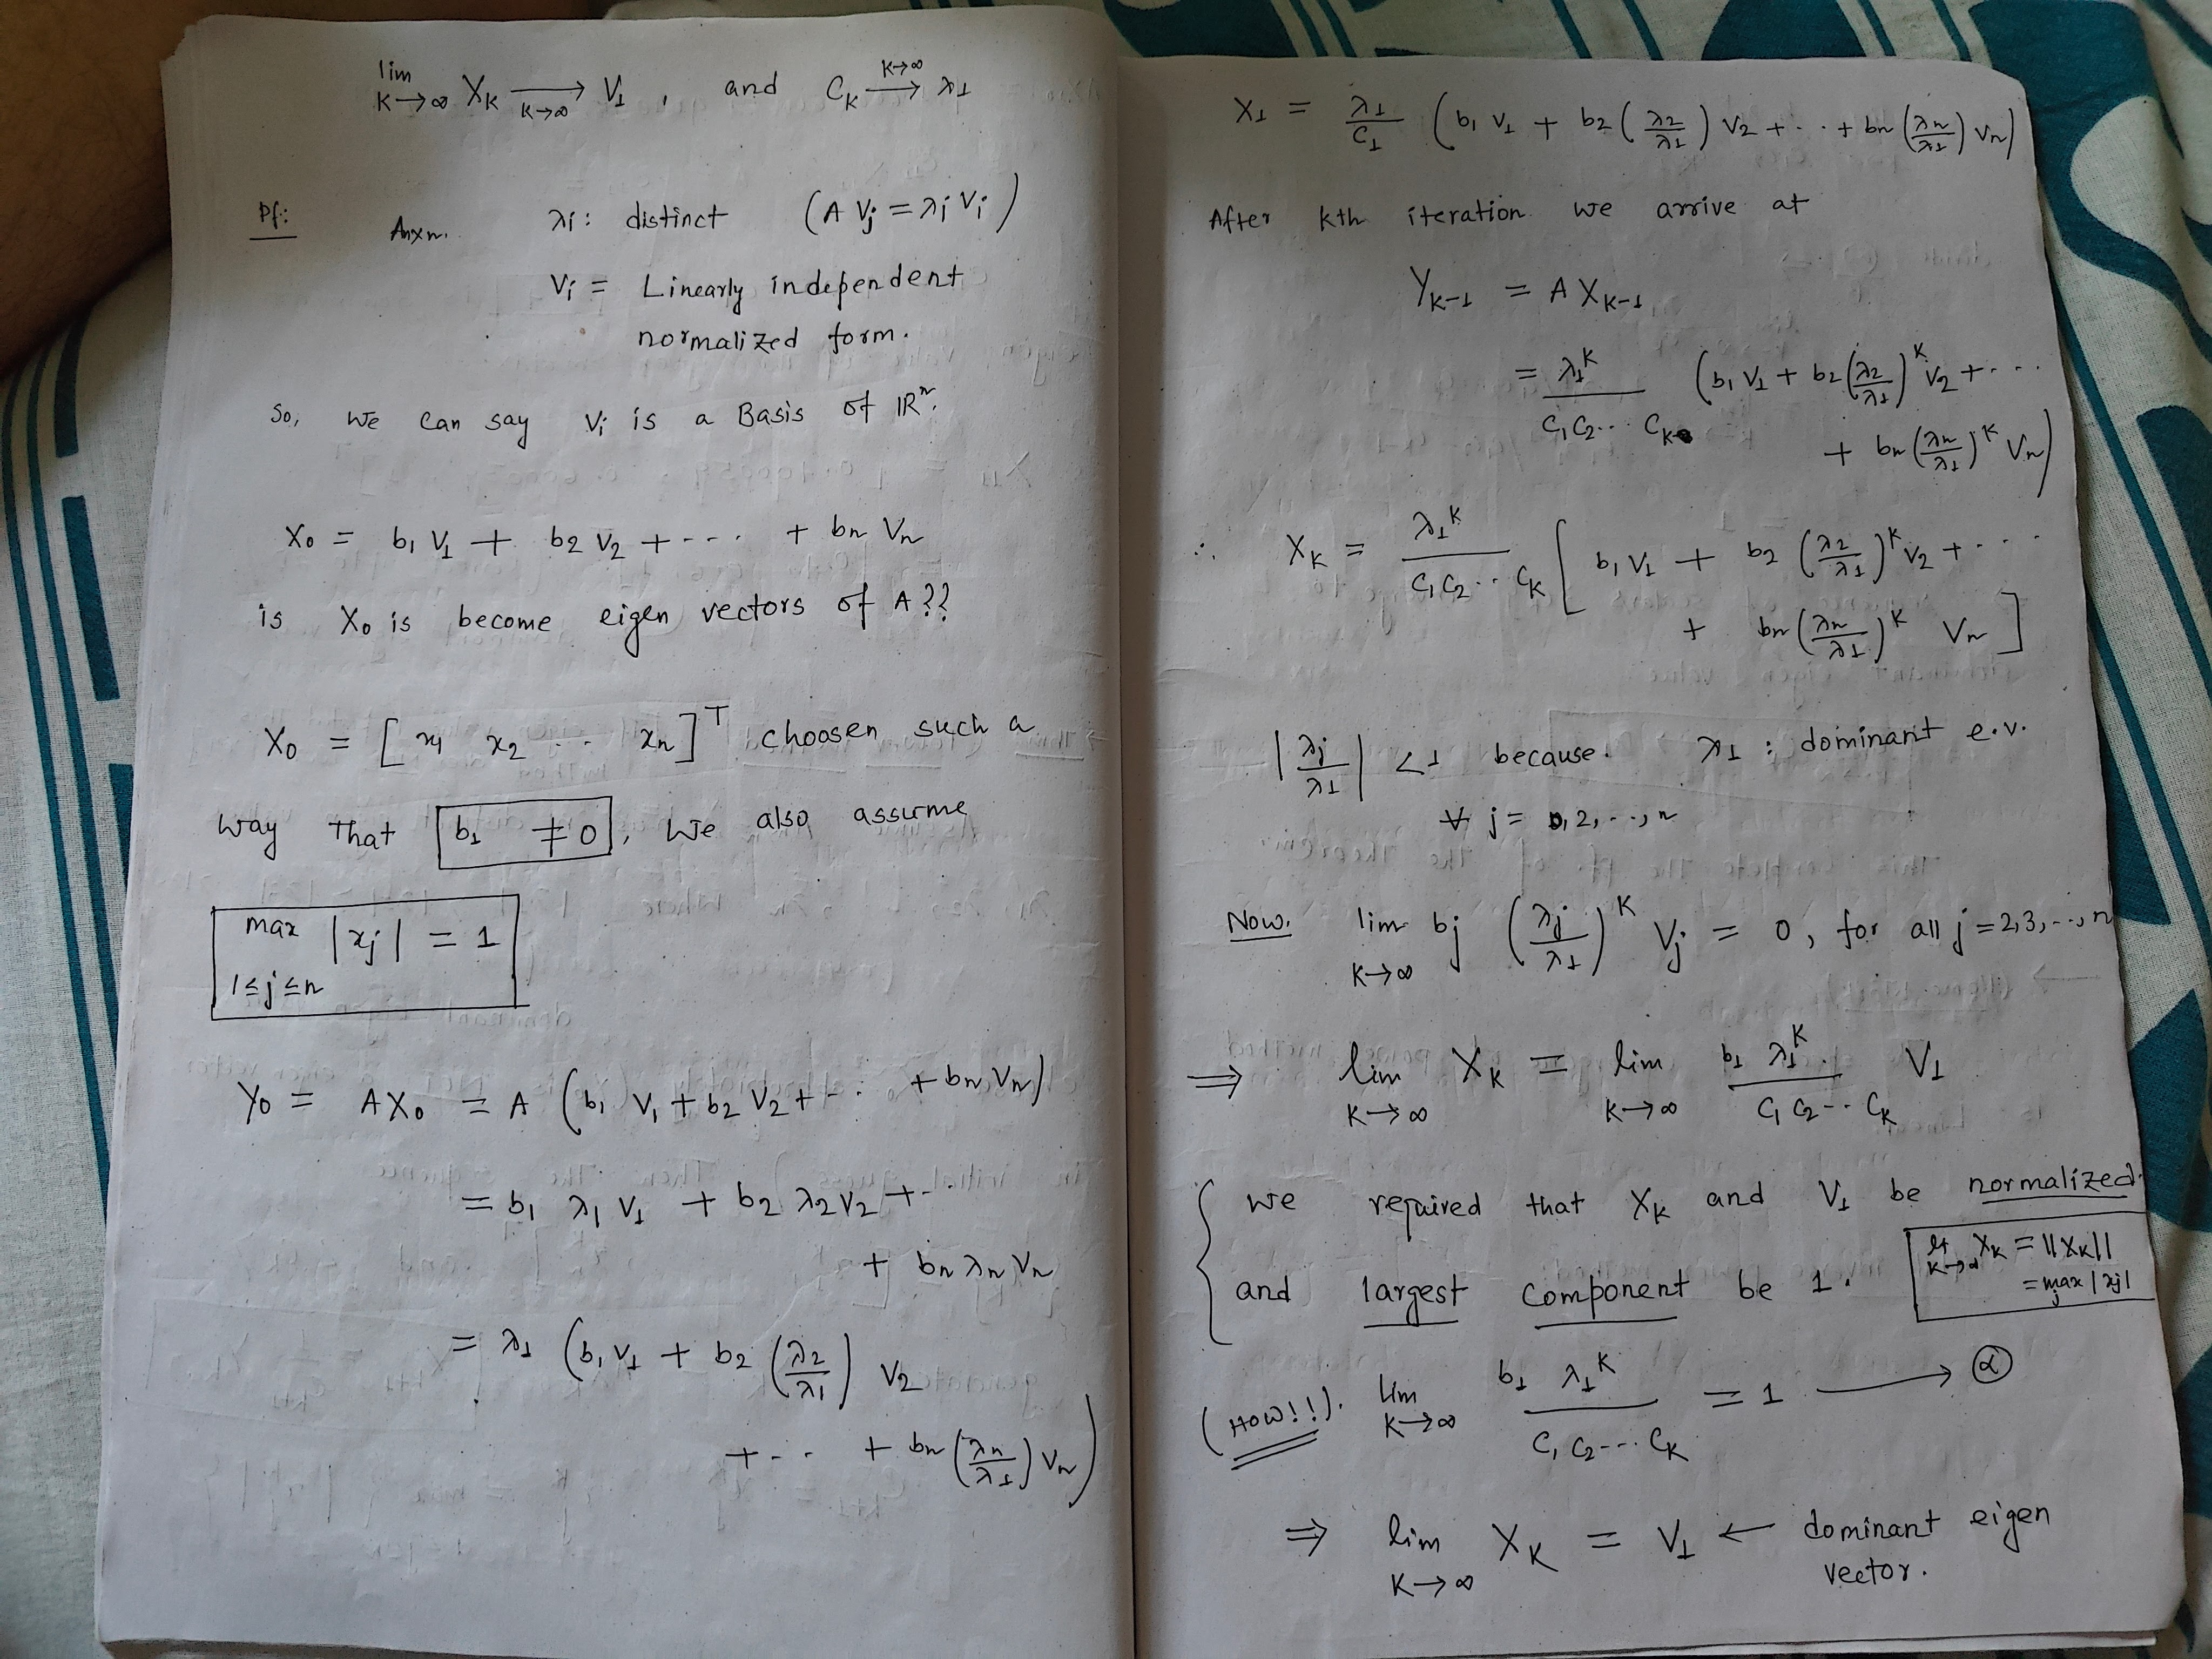 lim K→∞ X_K →_{K→∞} V_1, and C_K →^{K→∞} λ_1
Pf: A_{n×n}. λ_i : distinct (A V_j = λ_j V_j)
V_i = Linearly independent
normalized form.
So, we can say V_i is a Basis of ℝⁿ.
X_0 = b_1 V_1 + b_2 V_2 + --- + b_n V_n
is X_0 is become eigen vectors of A??
X_0 = [x_1 x_2 ... x_n]^T choosen such a
way that b_1 ≠ 0, We also assume
max |x_j| = 1
1≤j≤n
Y_0 = AX_0 = A (b_1 V_1 + b_2 V_2 + -.. + b_n V_n)
= b_1 λ_1 V_1 + b_2 λ_2 V_2 + -..
+ b_n λ_n V_n
= λ_1 (b_1 V_1 + b_2 (λ_2/λ_1) V_2
+ -.. + b_n (λ_n/λ_1) V_n)
X_1 = λ_1/C_1 (b_1 V_1 + b_2 (λ_2/λ_1) V_2 + ... + b_n (λ_n/λ_1) V_n)
After kth iteration we arrive at
Y_{K-1} = A X_{K-1}
= λ_1^K / C_1 C_2 ... C_K (b_1 V_1 + b_2 (λ_2/λ_1)^K V_2 + ...
+ b_n (λ_n/λ_1)^K V_n)
∴ X_K = λ_1^K / C_1 C_2 .. C_K [b_1 V_1 + b_2 (λ_2/λ_1)^K V_2 + ...
+ b_n (λ_n/λ_1)^K V_n]
|λ_j/λ_1| < 1 because. λ_1 : dominant e.v.
∀ j = 2, --, n
Now. lim K→∞ b_j (λ_j/λ_1)^K V_j = 0, for all j = 2, 3, --, n
⇒ lim K→∞ X_K = lim K→∞ b_1 λ_1^K / C_1 C_2 -- C_K V_1
{ we required that X_K and V_1 be normalized.
and largest component be 1.
lt K→∞ X_K = ||X_K||
= max_j |x_j|
(HOW!!). lim K→∞ b_1 λ_1^K / C_1 C_2 --- C_K = 1 → α
⇒ lim K→∞ X_K = V_1 ← dominant eigen
vector.